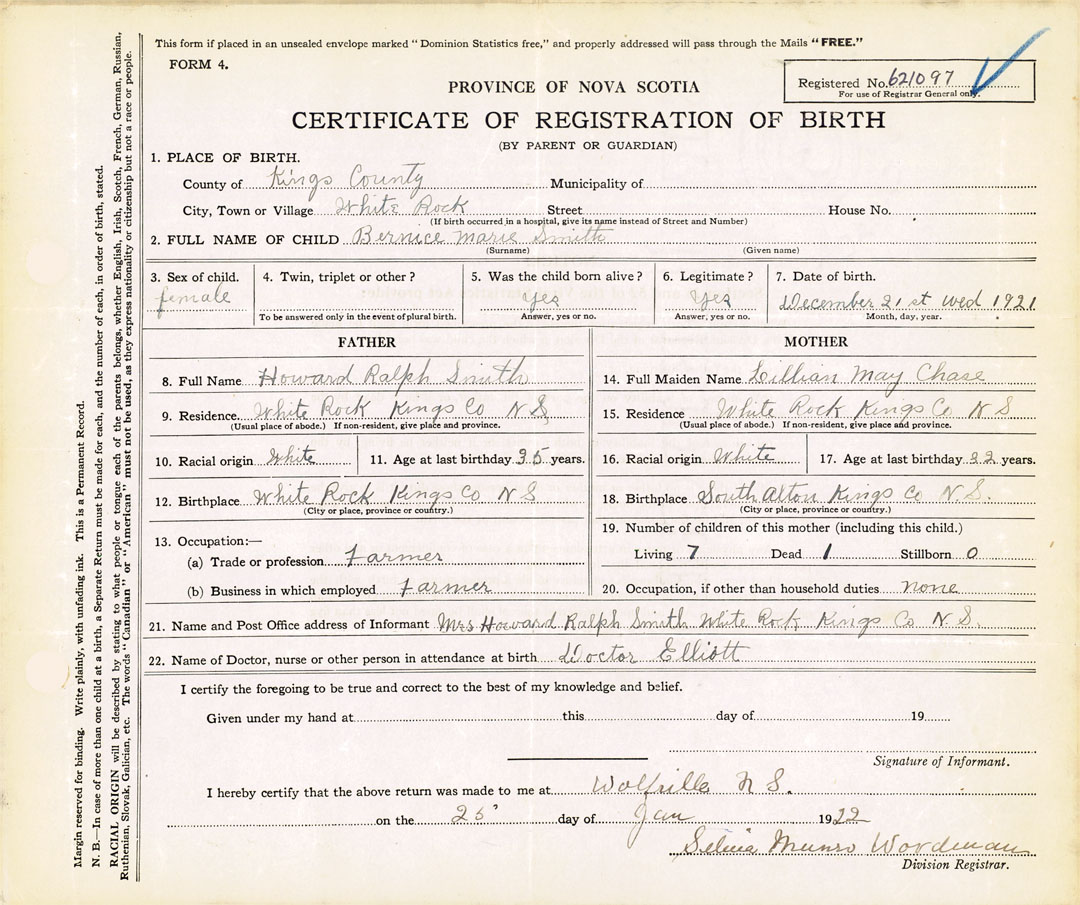 This form if placed in an unsealed envelope marked "Dominion Statistics free," and properly addressed will pass through the Mails "FREE."
FORM 4.
Registered No. 621097
For use of Registrar General only.
PROVINCE OF NOVA SCOTIA
CERTIFICATE OF REGISTRATION OF BIRTH
(BY PARENT OR GUARDIAN)
1. PLACE OF BIRTH.
County of Kings County Municipality of
City, Town or Village White Rock Street House No.
(If birth occurred in a hospital, give its name instead of Street and Number)
2. FULL NAME OF CHILD Bernice Marie Smith
(Surname) (Given name)
3. Sex of child. 4. Twin, triplet or other? 5. Was the child born alive? 6. Legitimate? 7. Date of birth.
female yes yes December 21st Wed 1921
To be answered only in the event of plural birth. Answer, yes or no. Answer, yes or no. Month, day, year.
FATHER
8. Full Name Howard Ralph Smith
9. Residence. White Rock Kings Co N S
(Usual place of abode.) If non-resident, give place and province.
10. Racial origin White 11. Age at last birthday 35 years.
12. Birthplace White Rock Kings Co N S
(City or place, province or country.)
13. Occupation:—
(a) Trade or profession Farmer
(b) Business in which employed Farmer
MOTHER
14. Full Maiden Name Lillian May Chase
15. Residence White Rock Kings Co N S
(Usual place of abode.) If non-resident, give place and province.
16. Racial origin White 17. Age at last birthday 32 years.
18. Birthplace South Alton Kings Co N S.
(City or place, province or country.)
19. Number of children of this mother (including this child.)
Living 7 Dead 1 Stillborn 0
20. Occupation, if other than household duties none
21. Name and Post Office address of Informant Mrs Howard Ralph Smith White Rock Kings Co N. S.
22. Name of Doctor, nurse or other person in attendance at birth Doctor Elliott
I certify the foregoing to be true and correct to the best of my knowledge and belief.
Given under my hand at this day of 19
Signature of Informant.
I hereby certify that the above return was made to me at Wolfville N S.
on the 25 day of Jan 1922
Munro Wordman
Division Registrar.
Margin reserved for binding. Write plainly, with unfading ink. This is a Permanent Record.
N. B.—In case of more than one child at a birth, a Separate Return must be made for each, and the number of each, in order of birth, stated.
RACIAL ORIGIN will be described by stating to what people or tongue each of the parents belongs, whether English, Irish, Scotch, French, German, Russian,
Ruthenian, Slovak, Galician, etc. The words "Canadian" or "American" must not be used, as they express nationality or citizenship but not a race or people.